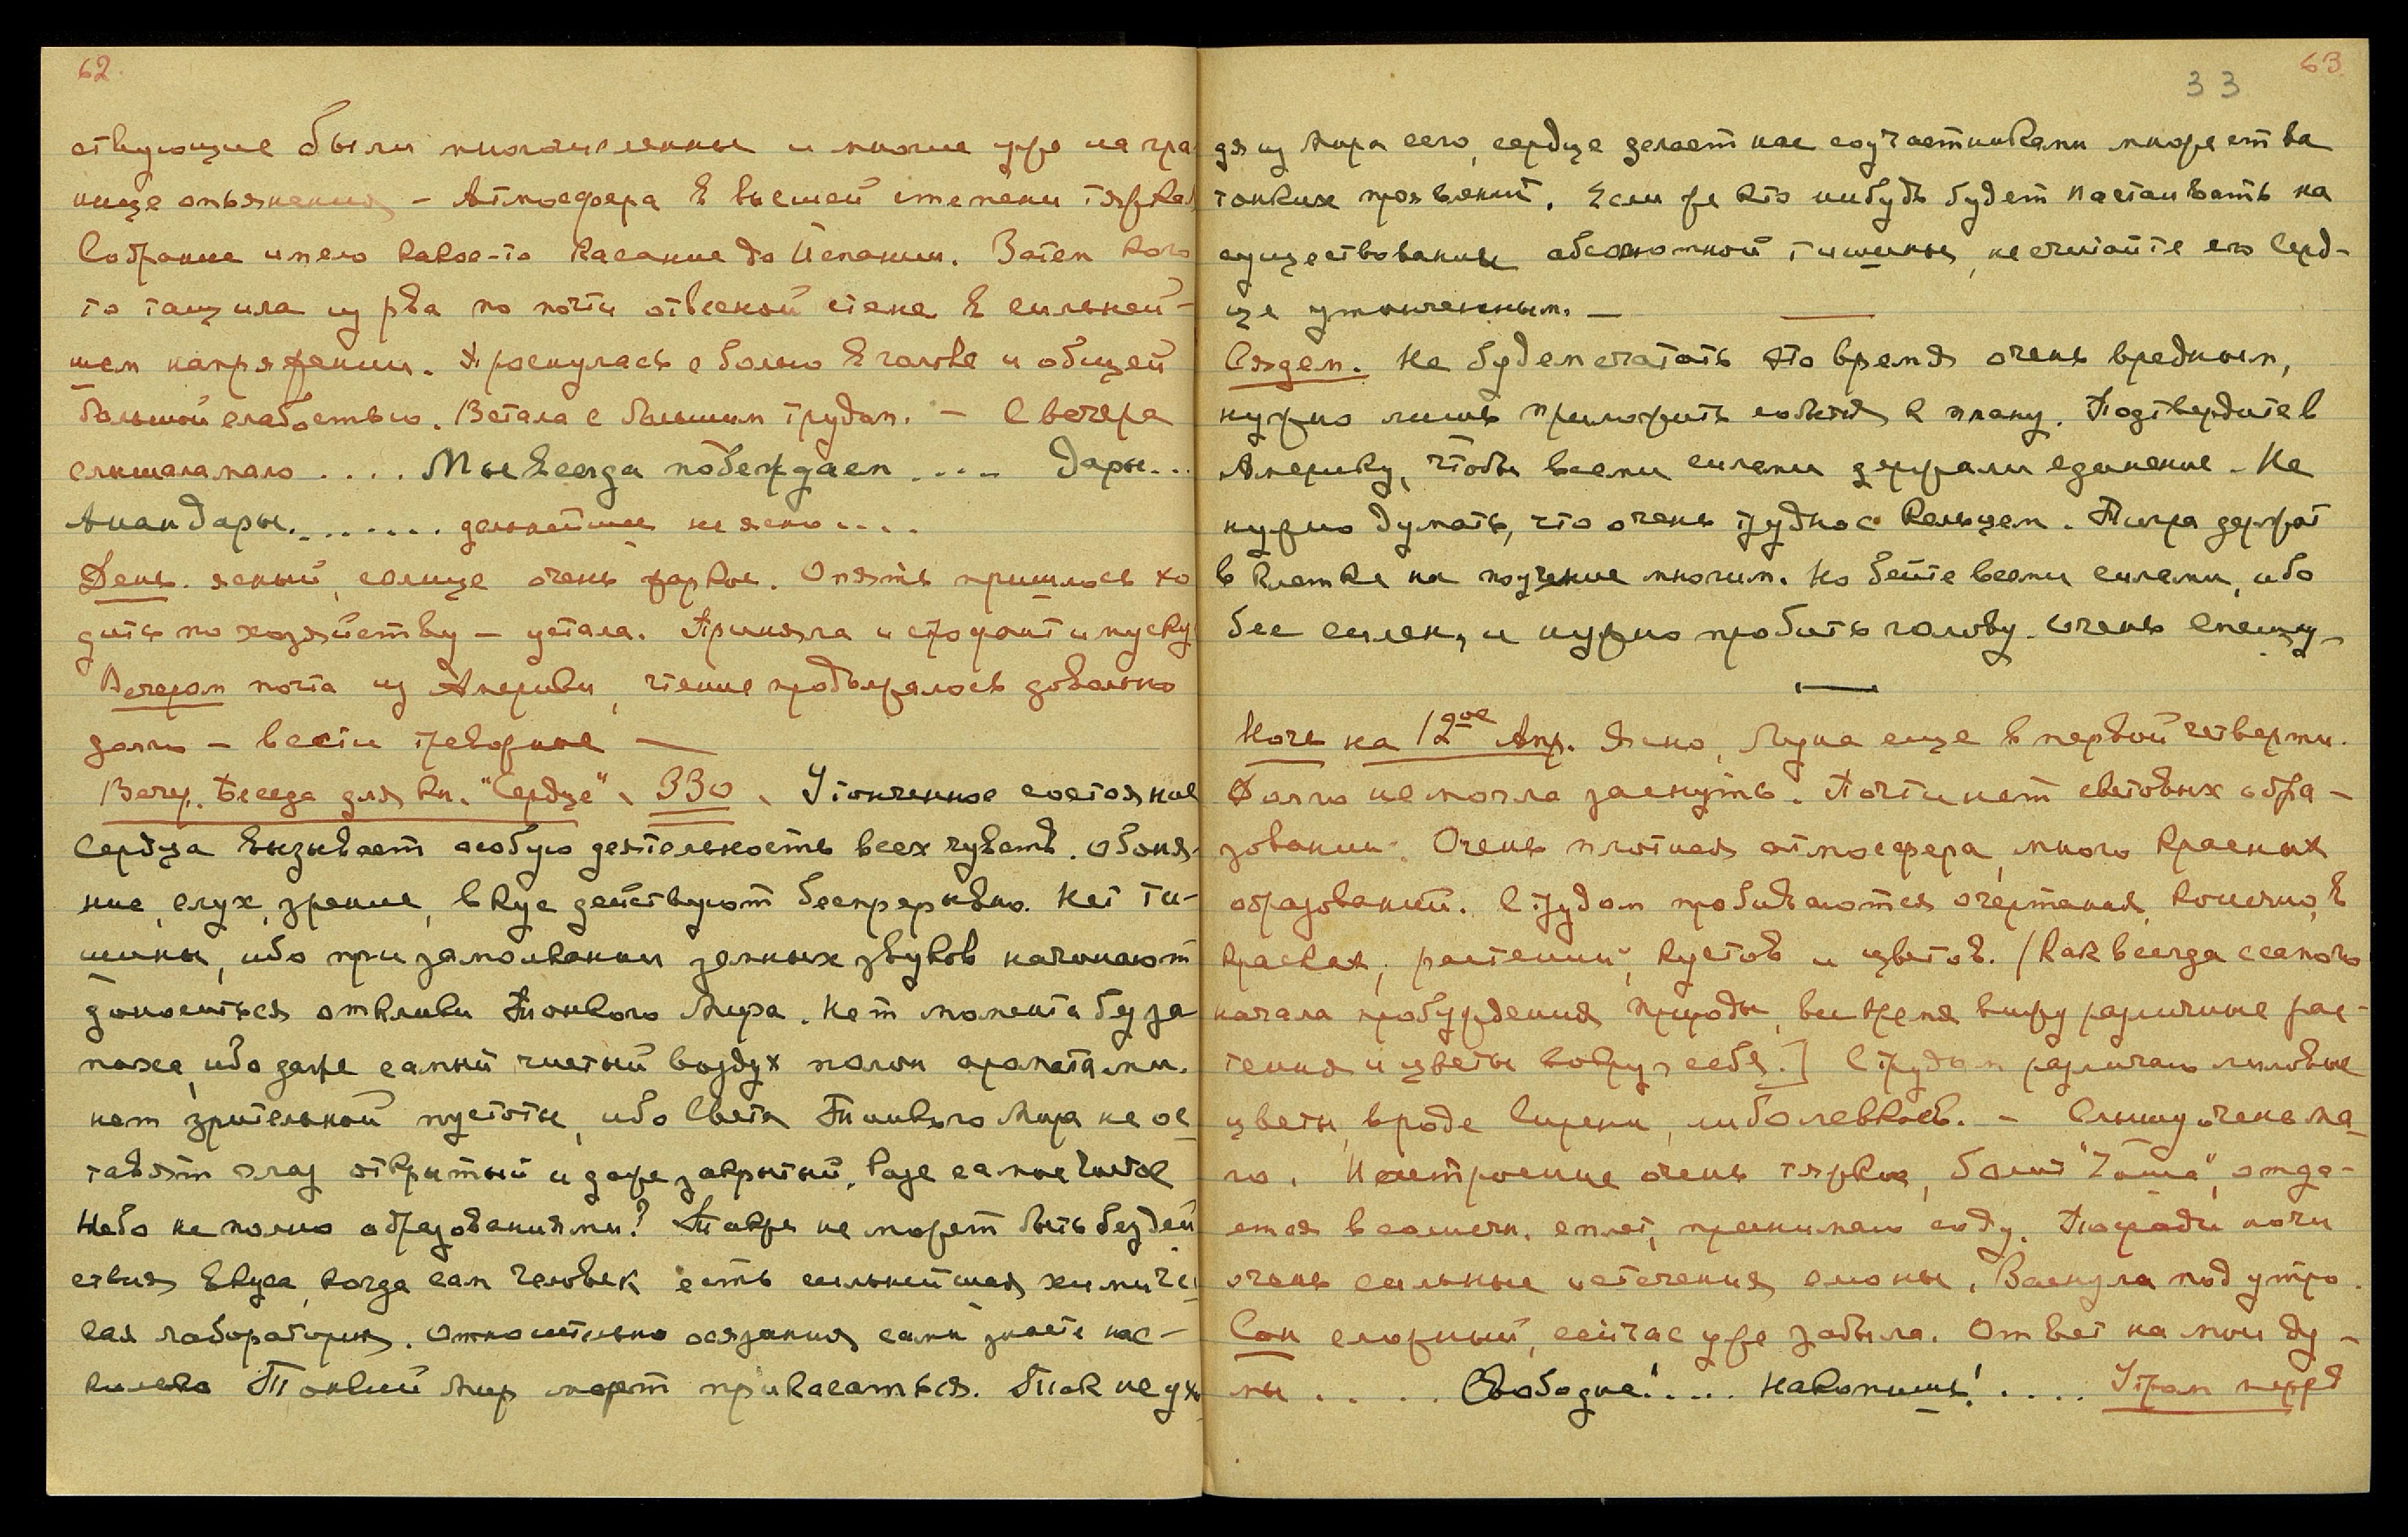 62.
ствующие были многочисленны и многие уже на гра
нице опьянения – Атмосфера в высшей степени тяжкая
Собрание имело какое-то касание до Испании. Затем кого
то тащила из рва по почти отвесной стене в сильней-
шем напряжении. Проснулась с болью в голове и общей
большой слабостью. Встала с большим трудом. – С вечера
слышала мало .... Мы всегда побеждаем .... Дары...
Анан дары. ....... дальнейшее не ясно ....
День. ясный, солнце очень жаркое. Опять пришлось хо
дить по хозяйству – устала. Приняла и строфант и муску
Вечером почта из Америки, чтение продолжалось довольно
долго – вести тревожные —
Вечер. Беседа для кн. "Сердце". 330. Утонченное состояние
Сердца вызывает особую деятельность всех чувств. Обоня-
ние, слух, зрение, вкус действуют беспрерывно. Нет ти-
шины, ибо при замолкании земных звуков начинают
доноситься отклики Тонкого Мира. Нет момента без за
паха, ибо даже самый чистый воздух полон ароматами.
нет зрительной пустоты, ибо Света Тонкого Мира не ос-
тавят глаз открытый и даже закрытый. Разве самое чистое
Небо не полно образованиями? Также не может быть бездей
ствия вкуса, когда сам человек есть сильнейшая химичес
кая лаборатория. Относительно осязания сами знаете нас-
колько Тонкий Мир может прикасаться. Так не ухо
63.
33
дя из Мира сего, сердце делает нас соучастниками множества
тонких проявлений. Если же кто нибудь будет настаивать на
существовании абсолютной тишины, не считайте его Серд-
це утонченным. —
Сядем. Не будем считать это время очень вредным,
нужно лишь приложить события к плану. Подтвердите в
Америку, чтобы всеми силами держали единение. Не
нужно думать, что очень трудно с Кельцем. Тигра держат
в клетке на поучение многим. Но бейте всеми силами, ибо
бес силен, и нужно пробить голову. Очень спешу –
Ночь на 12ое Апр. Ясно, Луна еще в первой четверти.
Долго не могла заснуть. Почти нет световых обра-
зований. Очень плотная атмосфера, много красных
образований. С трудом пробиваются очертания, конечно, в
красках, растений, кустов и цветов. (Как всегда с самого
начала пробуждения Природы, все время вижу различные рас-
тения и цветы вокруг себя.] С трудом различаю лиловые
цветы, вроде Сирени, либо левкоев. – Слышу очень ма-
ло. Настроение очень тяжкое, болит отда-
ется в солнечн. сплет, принимаю соду. Посреди ночи
очень сильные истечения слюны. Заснула под утро.
Сон сложный, сейчас уже забыла. Ответ на мои ду-
мы .... Свободна! .... Накопишь! .... Утром перед